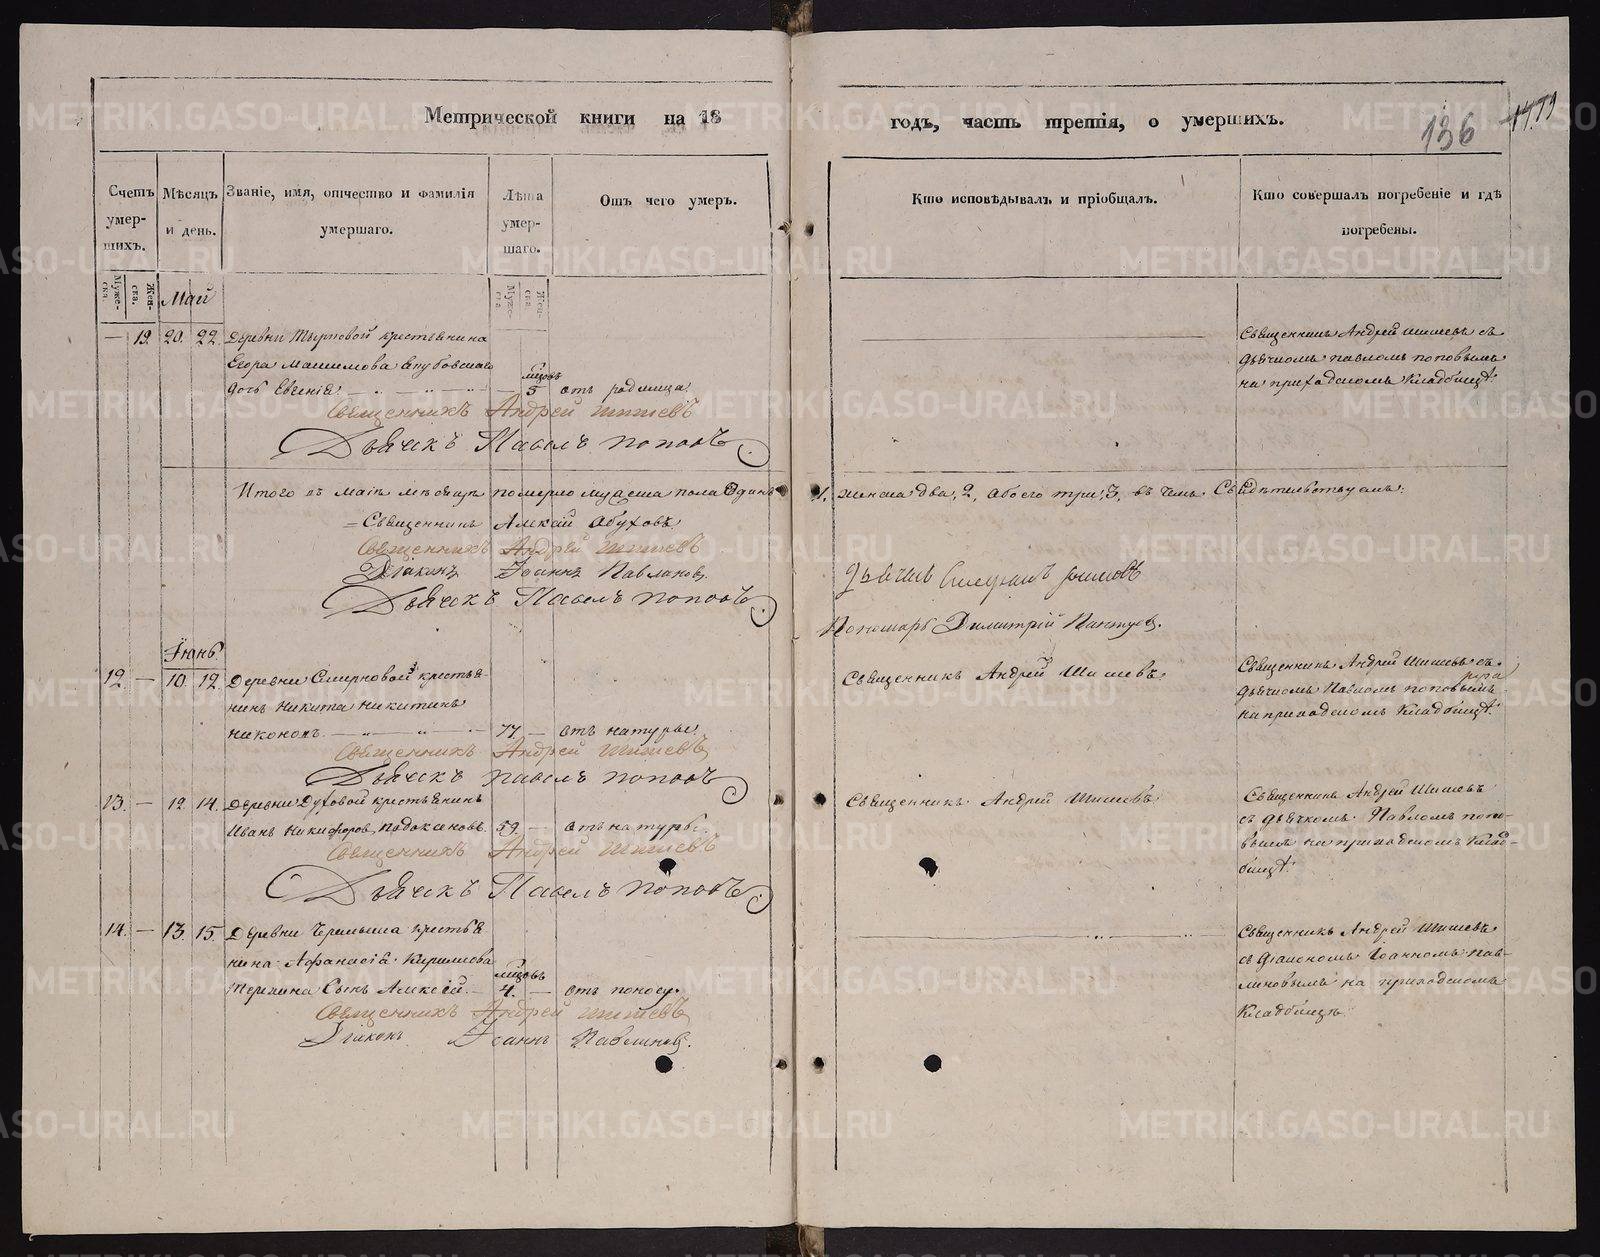 Метрической книги на 18
годъ, часть третія, о умершихъ.
136
Счетъ умер-шихъ.
Мѣсяцъ и день.
Званіе, имя, отчество и фамилія умершаго.
Лѣта умер-шаго.
Отъ чего умеръ.
Кто исповѣдывалъ и пріобщалъ.
Кто совершалъ погребеніе и гдѣ погребены.
Муже-ска.
Жен-ска.
Муже-ска.
Жен-ска.
Май
— 19. 20. 22. Деревни крестьянина
Егора
дочь Евгенія — — 5 отъ родимца
мѣсяцовъ
Священникъ Андрей Шишевъ съ
дьячкомъ Павломъ Поповымъ
на приходскомъ кладбищѣ.
Священникъ Андрей Шишевъ
Дьячекъ Павелъ Поповъ.
Итого въ маіѣ мѣсяцѣ померло мужеска пола одинъ
1. женска два, 2, обоего три, 3, въ чемъ свидѣтельствуемъ:
Священникъ Алексій Обуховъ
Священникъ Андрей Шишевъ
Діаконъ Іоаннъ Павлиновъ
Дьячекъ Павелъ Поповъ
Дьячекъ
Пономарь Димитрій
Іюнь
12 — 10. 12. Деревни Смирновой крестья-
нинъ Никита Никитинъ
Никоновъ — 77. — отъ натуры
Священникъ Андрей Шишевъ
Священникъ Андрей Шишевъ съ
дьячкомъ Павломъ Поповымъ
на приходскомъ кладбищѣ.
Священникъ Андрей Шишевъ
Дьячекъ Павелъ Поповъ
13. — 12. 14. Деревни Духовой крестьянинъ
Иванъ Никифоровъ 59. — отъ натуры
Священникъ Андрей Шишевъ
Священникъ Андрей Шишевъ
съ дьячкомъ Павломъ Попо-
вымъ на приходскомъ клад-
бищѣ.
Священникъ Андрей Шишевъ
Дьячекъ Павелъ Поповъ.
14. — 13. 15. Деревни крестья
нина Афанасія Кирилова
мѣсяцовъ
сынъ Алексій. — 4. — отъ поносу.
Священникъ Андрей Шишевъ
съ діакономъ Іоанномъ Пав-
линовымъ на приходскомъ
кладбищѣ
Священникъ Андрей Шишевъ
Діаконъ Іоаннъ Павлиновъ.
METRIKI.GASO-URAL.RU